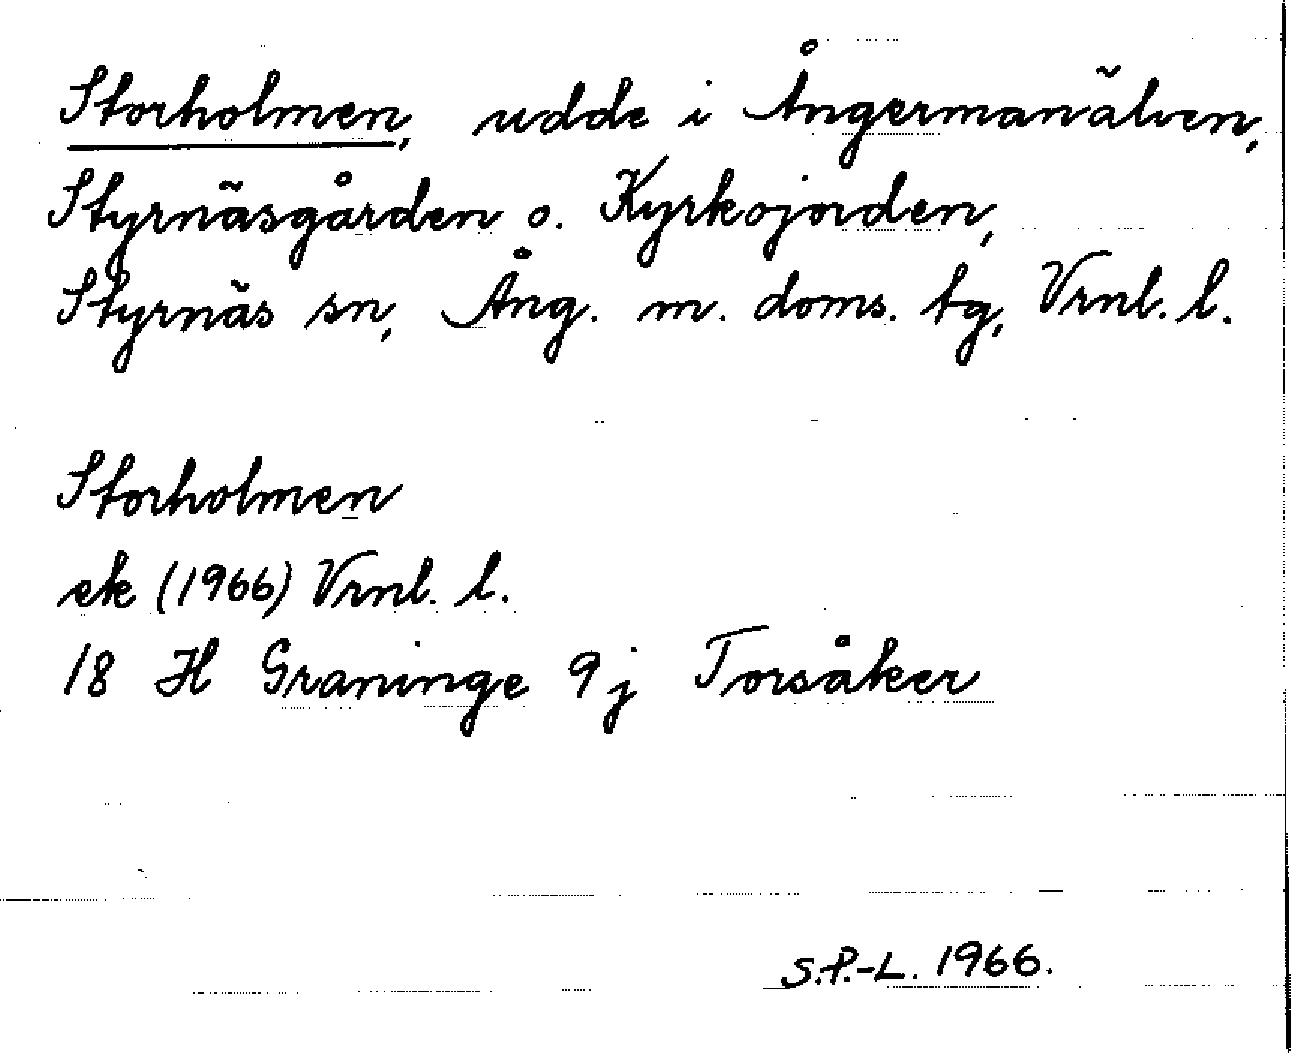 Storholmen, udde i Ångermanälven,
Styrnäsgården o. Kyrkojorden,
Styrnäs sn, Ång. m. doms. tg, Vrnl. l.
Storholmen
ek (1966) Vrnl. l.
18 H Graninge 9j Torsåker
S.P.-L. 1966.